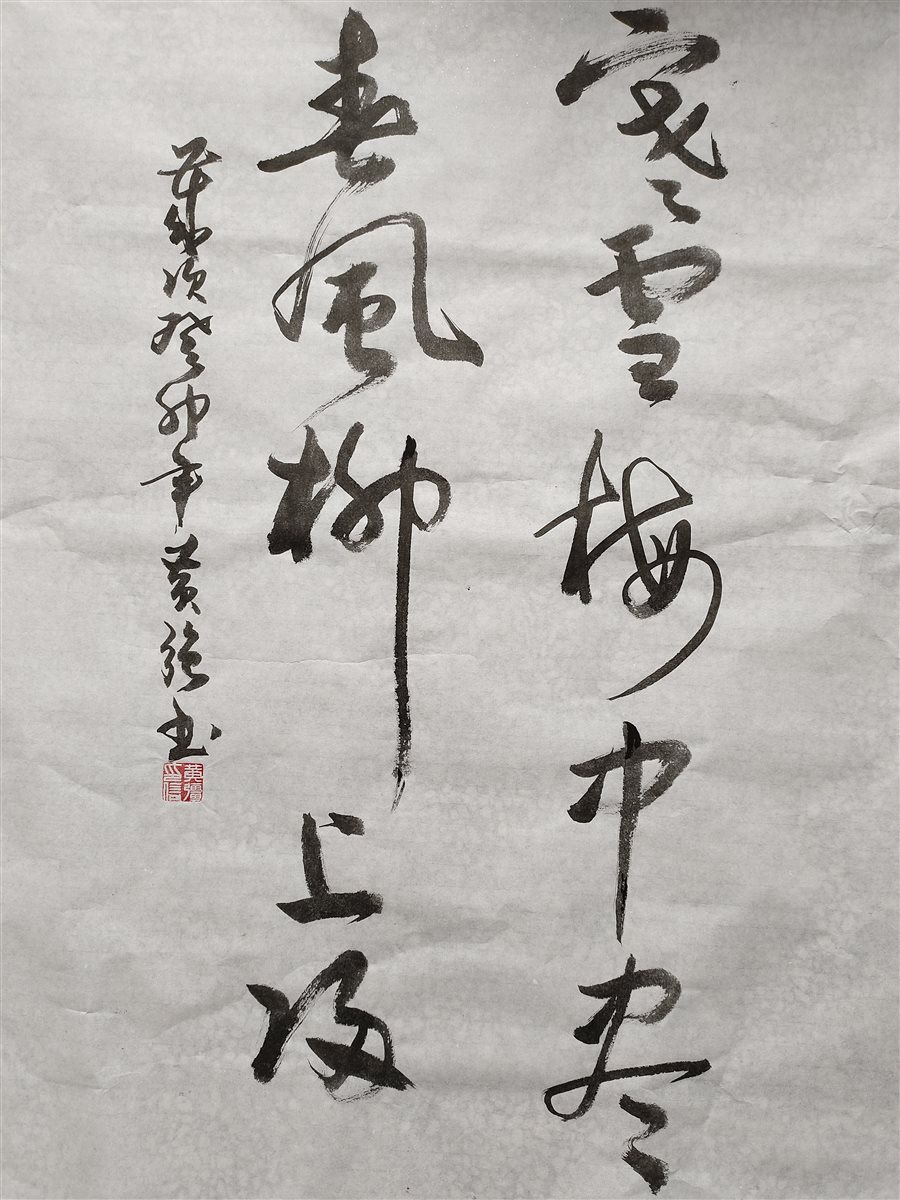 寒雪梅中尽
春风柳上归
岁次癸卯年黄强书
黄强印信